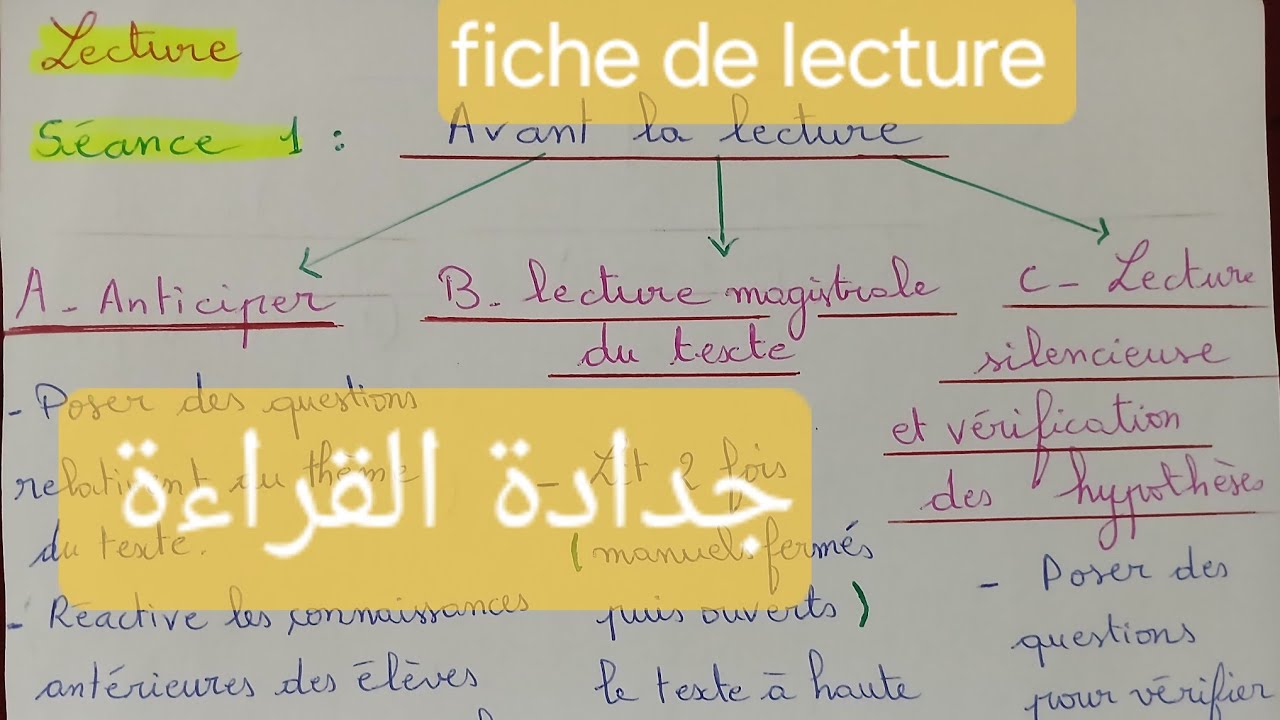 Lecture
fiche de lecture
Séance 1 : Avant la lecture
A - Anticiper
B - lecture magistrale
du texte
C - Lecture
silencieuse
et vérification
des hypothèses
- Poser des questions
relativant au thème
du texte.
- Réactive les connaissances
antérieures des élèves
جدادة القراءة
- Lit 2 fois
(manuels fermés
puis ouverts)
le texte à haute
- Poser des
questions
pour vérifier